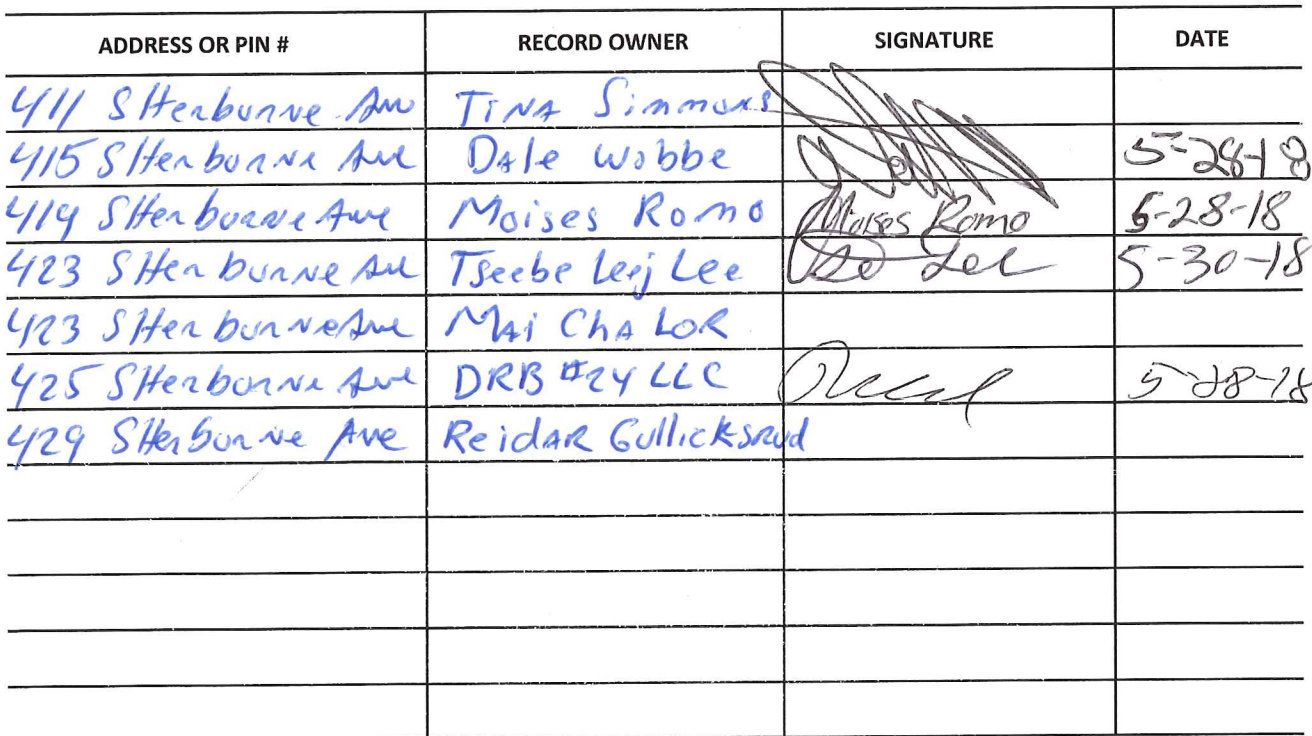 ADDRESS OR PIN # RECORD OWNER SIGNATURE DATE
411 SHerburne Ave Tina Simmons
415 SHerburne Ave Dale Wobbe 5-28-18
419 SHerburne Ave Moises Romo Moises Romo 5-28-18
423 SHerburne Ave Tseebe Leej Lee Lee 5-30-18
423 SHerburne Ave Mai Cha Lor
425 SHerburne Ave DRB #24 LLC 5-28-18
429 SHerburne Ave Reidar Gullicksrud